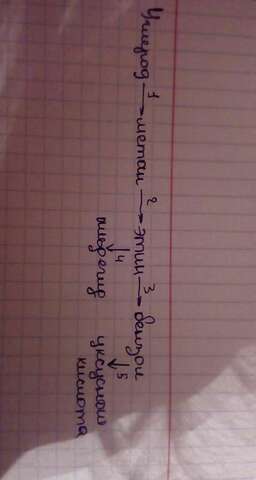 Углерод 1→ метан 2→ этин 3→ бензол
↓4 ↓5
альдегид уксусная
кислота